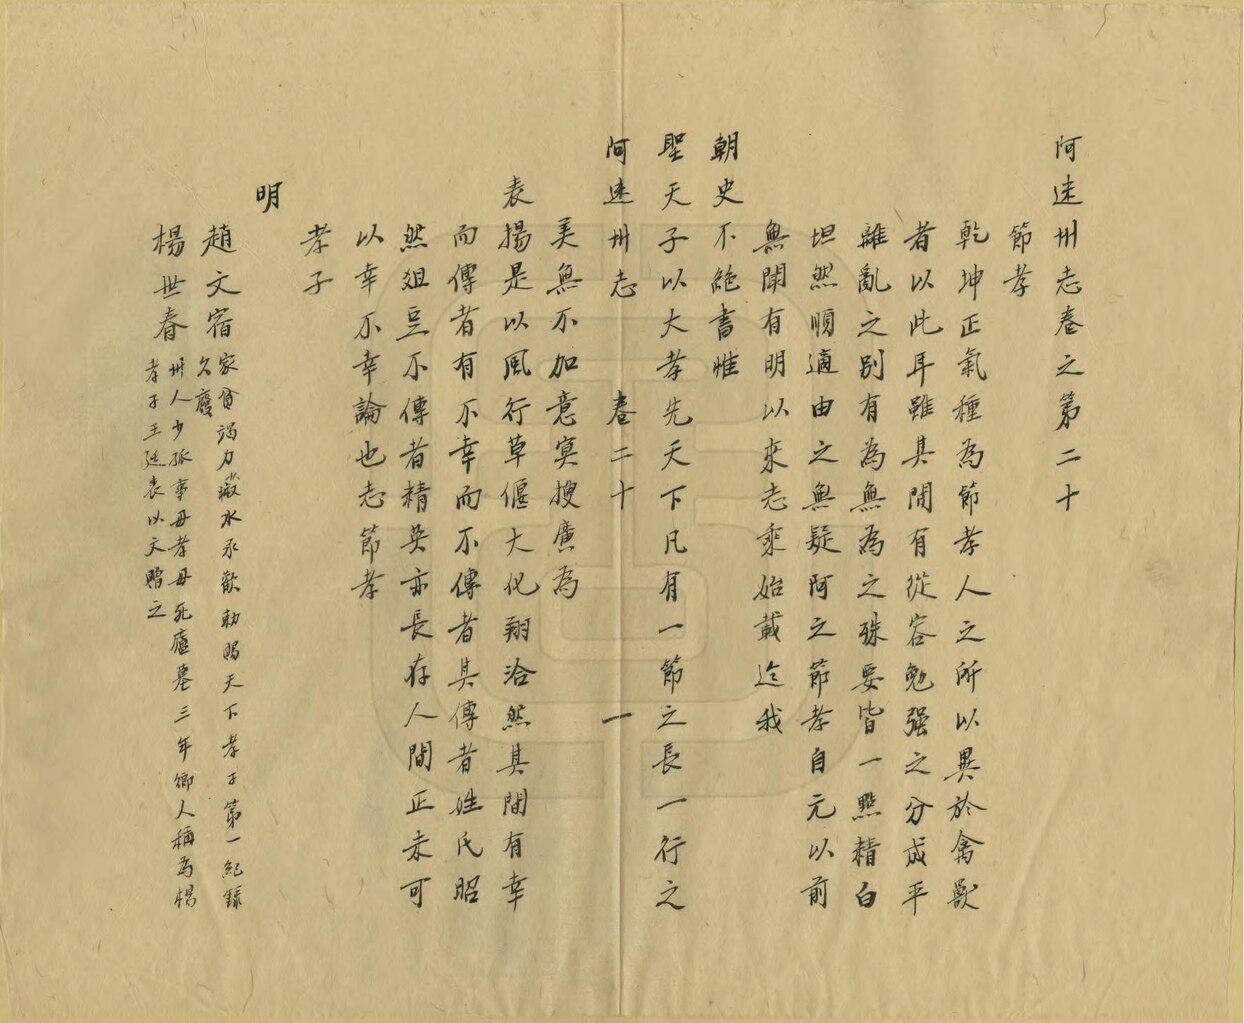 阿迷州志卷之第二十
節孝
乾坤正氣種為節孝人之所以異於禽獸
者以此耳雖其間有從容勉强之分成平
離亂之別有為無為之殊要皆一點精白
坦然順適由之無疑阿之節孝自元以前
無聞有明以來志乘始載迄我
朝史不絕書惟
聖天子以大孝先天下凡有一節之長一行之
阿迷州志 卷二十 一
美無不加意冥搜廣為
表揚是以風行草偃大化翔洽然其間有幸
而傳者有不幸而不傳者其傳者姓氏昭
然俎豆不傳者精英亦長存人間正未可
以幸不幸論也志節孝
孝子
明
趙文宿家貧竭力菽水承歡勅賜天下孝子第一紀錄
久廢
楊世春州人少孤事母孝母死廬墓三年鄉人稱為楊
孝子王廷表以文贈之